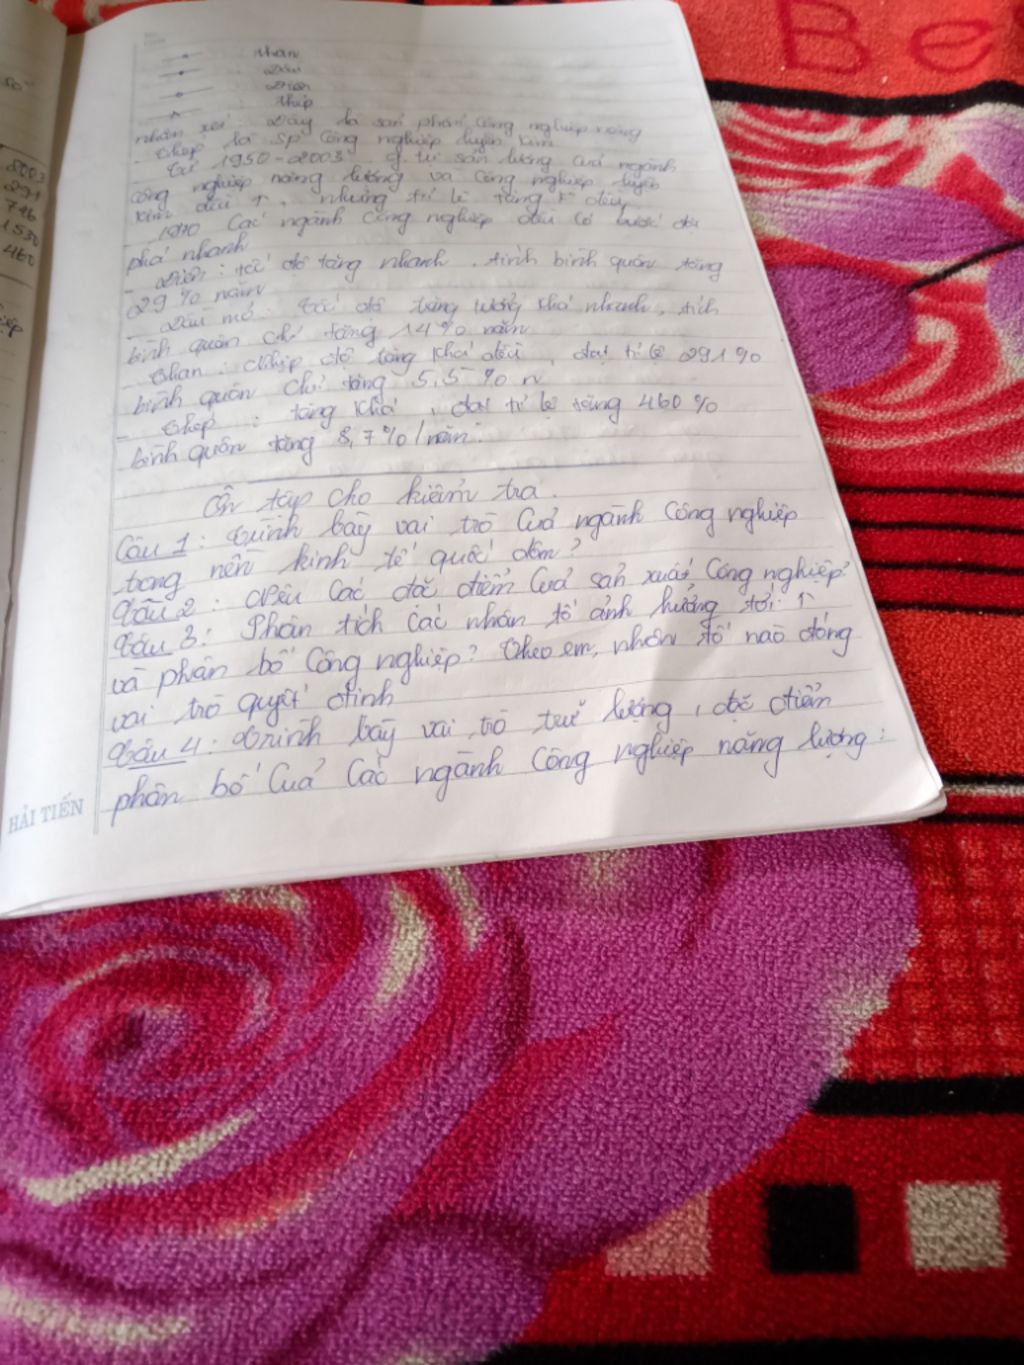 Be
50
2003
291
746
1530
460
: Than
: Dầu
: Điện
: Thép
nhận xét: Đây là sản phẩm công nghiệp năng
Thép là sp công nghiệp luyện kim
Từ 1950-2003 g. trị sản lượng của ngành
công nghiệp năng lượng và công nghiệp luyện
kim đều ↑, nhưng tỉ lệ tăng k đều
1970 các ngành công nghiệp đều có bước đột
phá nhanh
- Điện: tốc độ tăng nhanh, tính bình quân tăng
29% năm
- Dầu mỏ: Tốc độ tăng trưởng khá nhanh, tính
bình quân chỉ tăng 14% năm
- Than: Nhịp độ tăng khá đều, đạt tỉ lệ 291%
bình quân chỉ tăng 5,5% n
- Thép: tăng khá, đạt tỉ lệ tăng 460%
bình quân tăng 8,7%/năm.
Ôn tập cho kiểm tra.
Câu 1: Trình bày vai trò của ngành công nghiệp
trong nền kinh tế quốc dân?
Câu 2: Nêu các đặc điểm của sản xuất công nghiệp?
Câu 3: Phân tích các nhân tố ảnh hưởng tới ↑
và phân bố công nghiệp? Theo em, nhân tố nào đóng
vai trò quyết định
Câu 4: Trình bày vai trò trữ lượng, đặc điểm
phân bố của các ngành công nghiệp năng lượng:
HẢI TIẾN